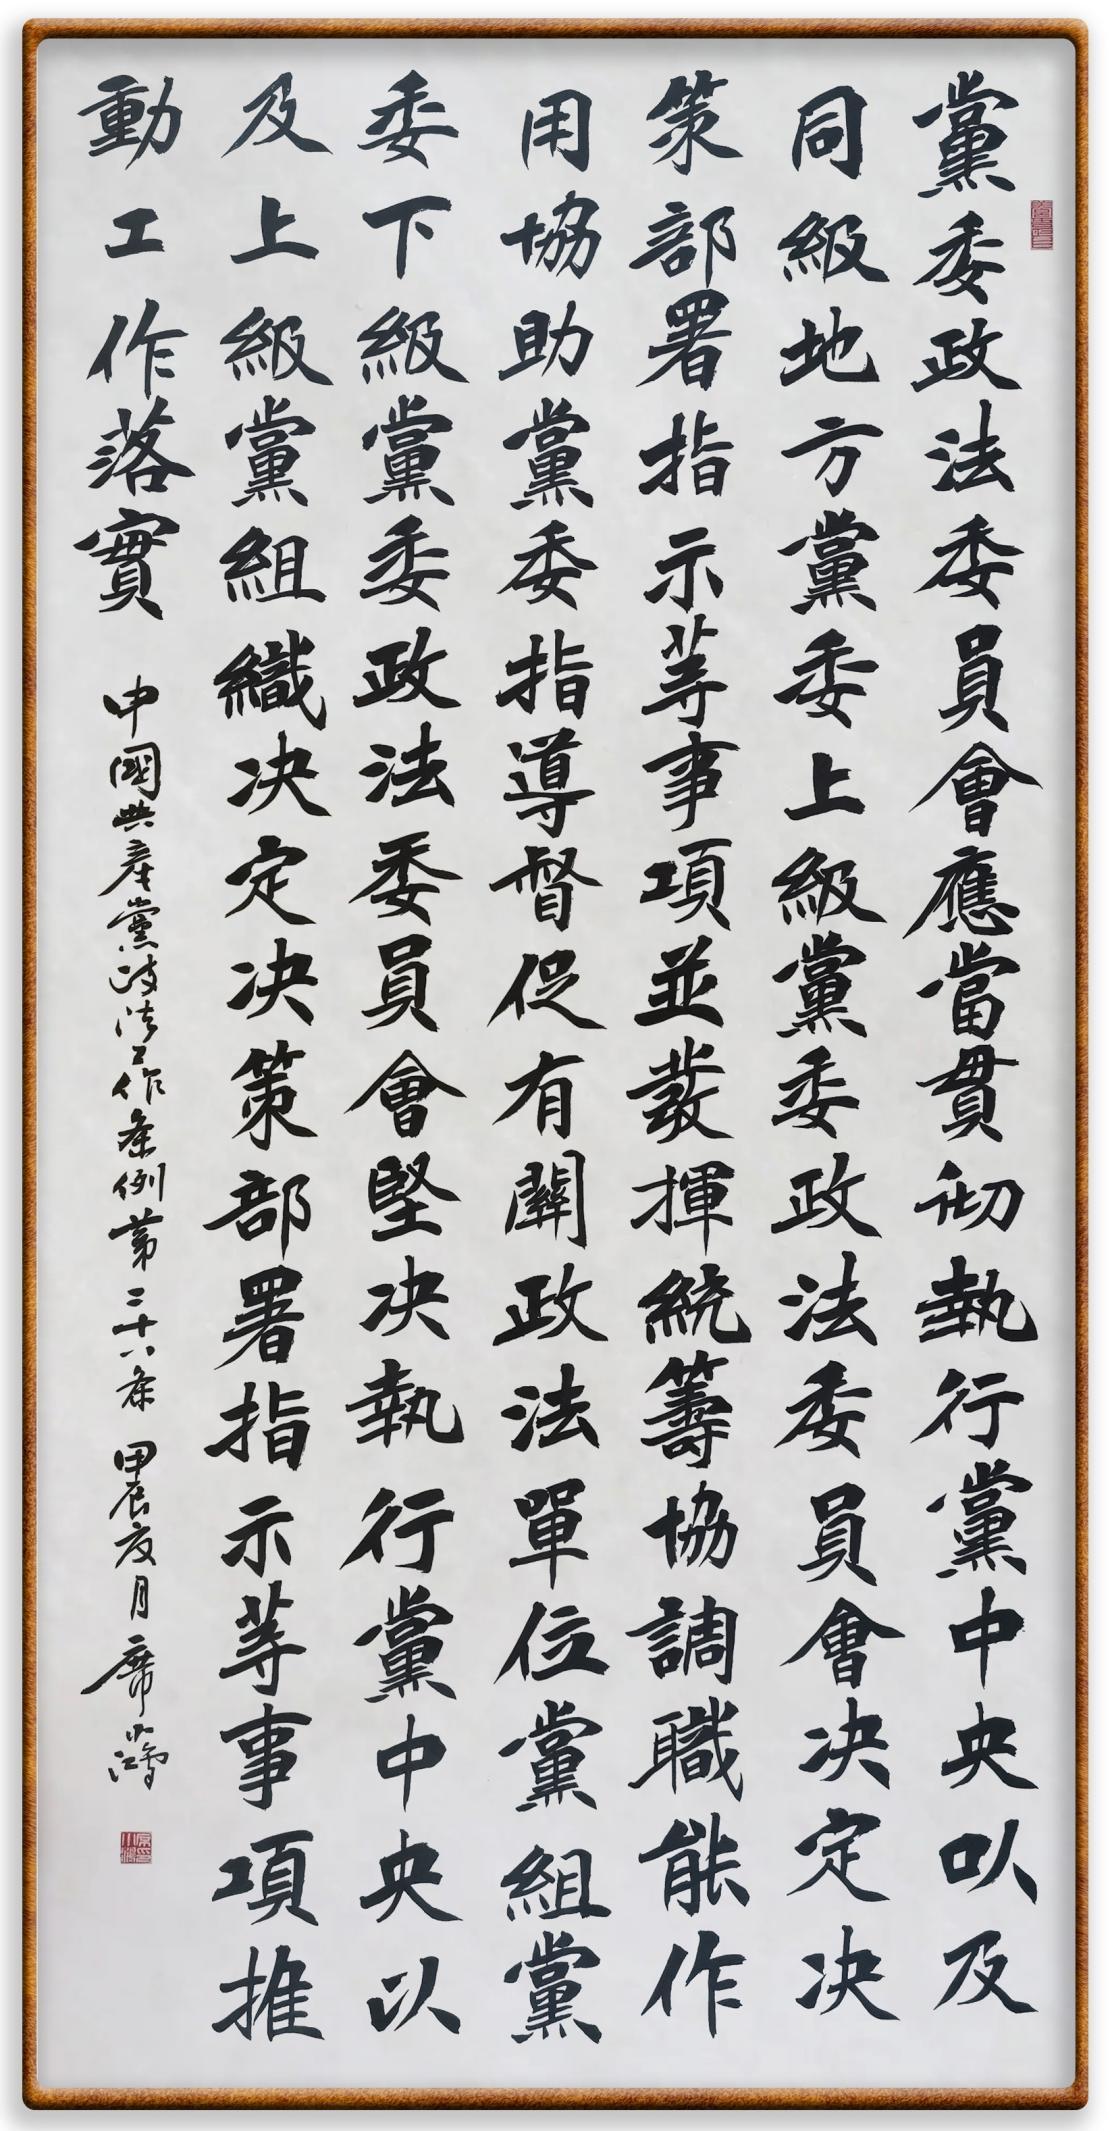 黨委政法委員會應當貫彻執行黨中央以及
同級地方黨委上級黨委政法委員會決定决
策部署指示等事項並發揮統籌協調職能作
用協助黨委指導督促有關政法單位黨組黨
委下級黨委政法委員會堅决執行黨中央以
及上級黨組織决定决策部署指示等事項推
動工作落實
中國共産黨政法工作条例第二十八条 甲辰夜月 席小鴻